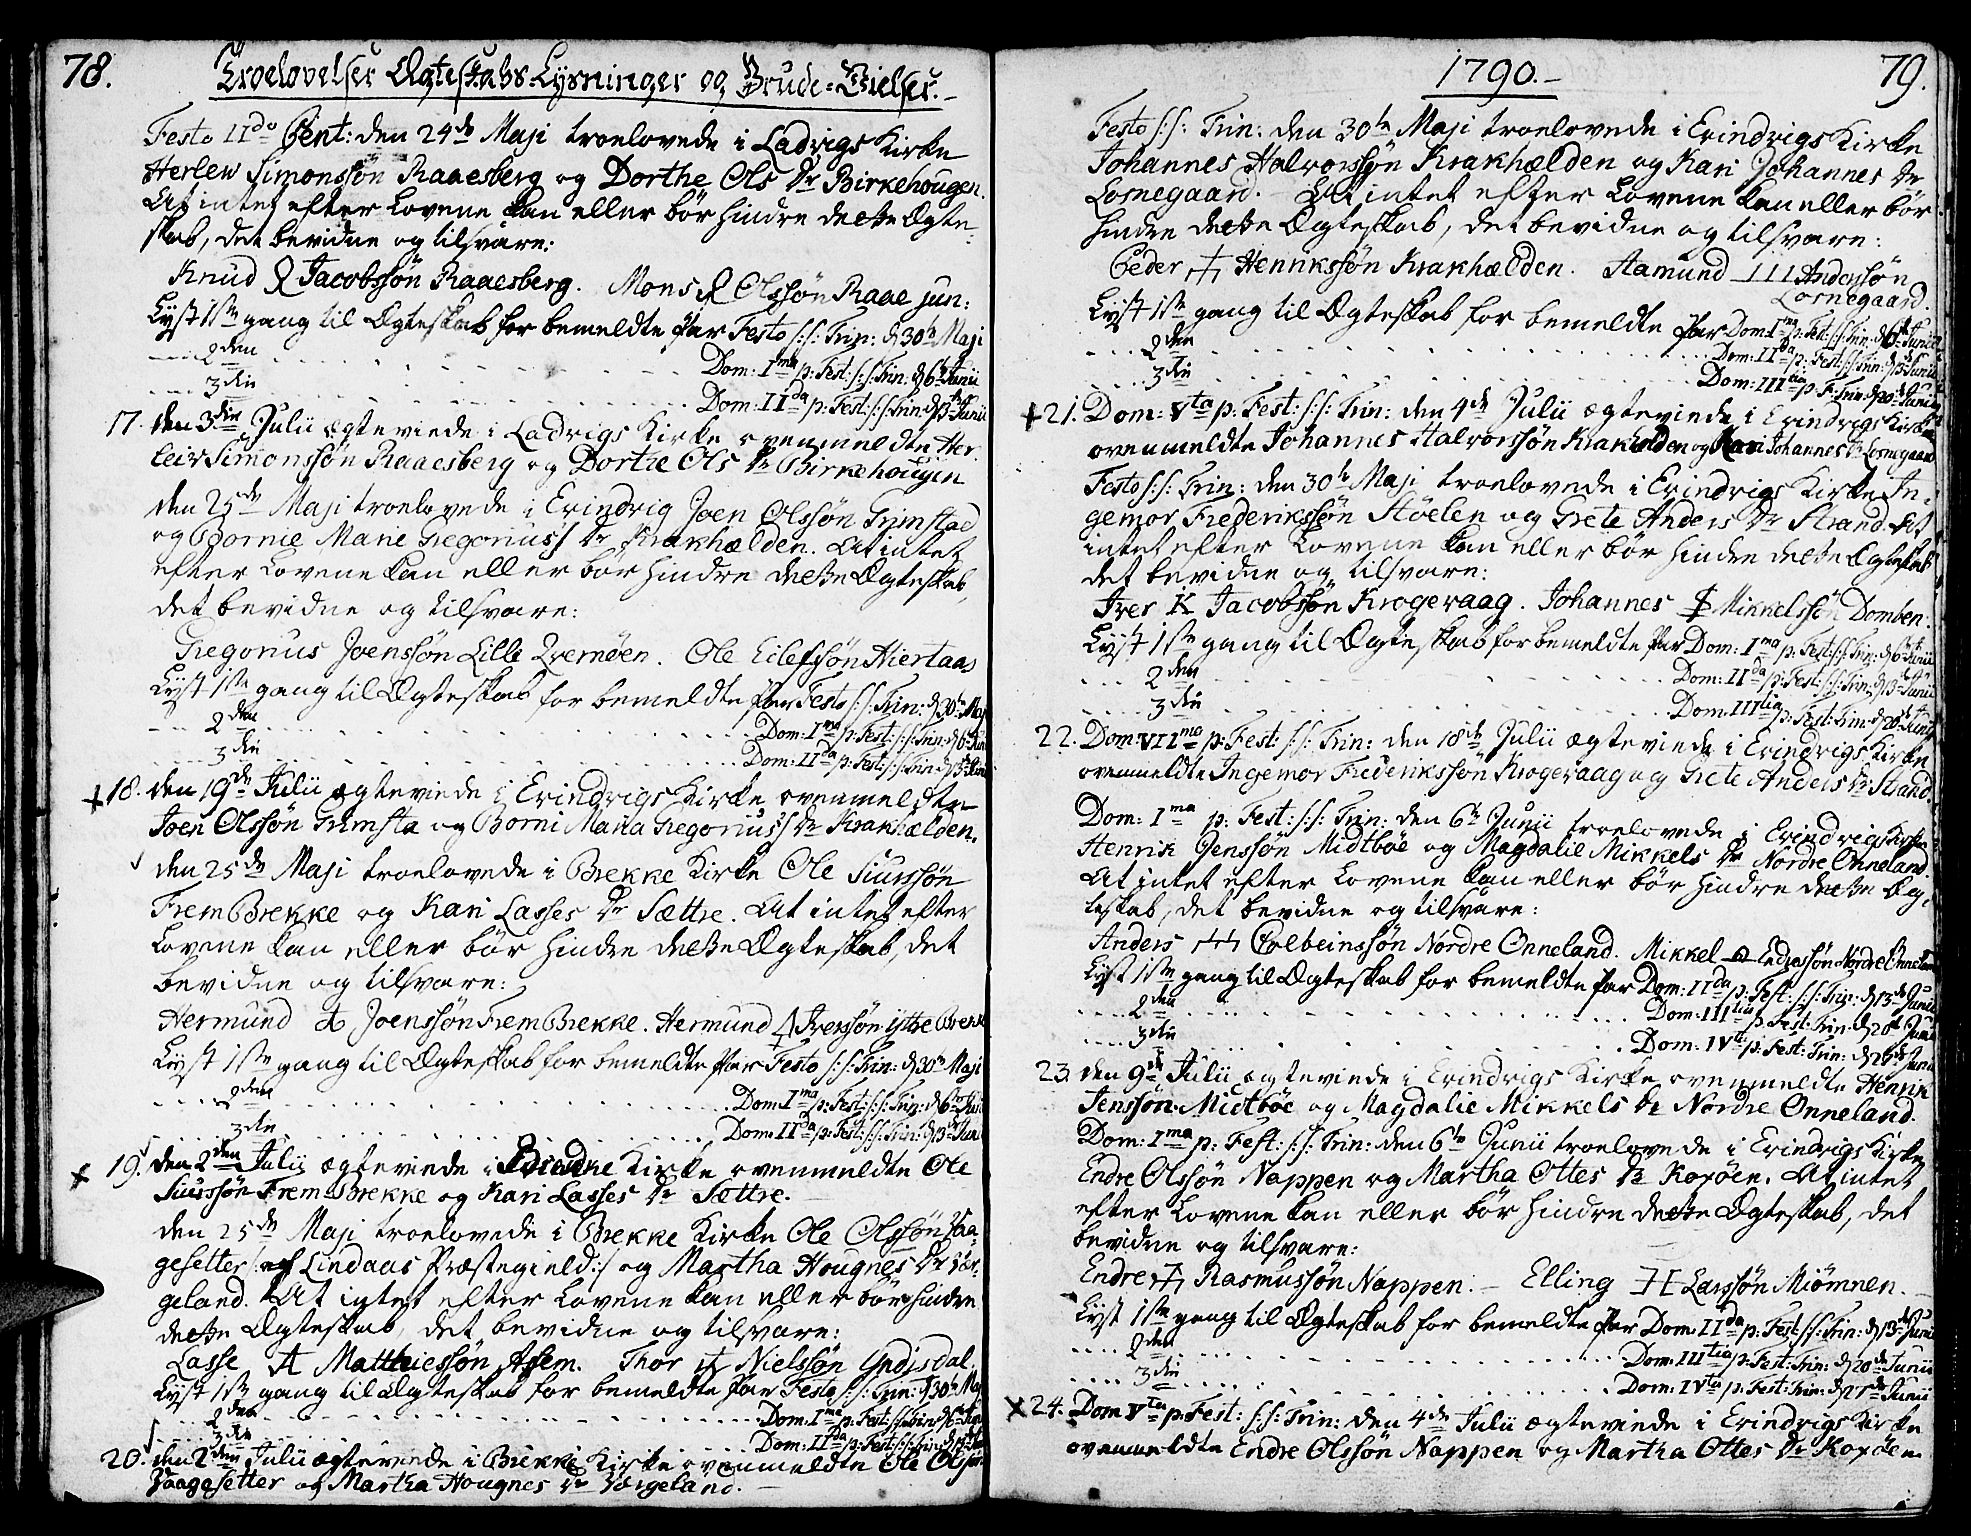 78.
Troelovelser Ægteskabs-Lysninger og Brude-Vielser.
Festo IIdo Pent: den 24de Maji troelovede i Ladvigs Kirke
Herlew Simonssøn Raaesberg og Dorthe Ols Dr Birkehougen.
At intet efter Lovene kan eller bør hindre dette Ægte-
skab, det bevidne og tilsvare:
Knud Jacobssøn Raaesberg. Mons Olssøn Raae jun:
Lyst 1ste gang til Ægteskab for bemeldte Par Festo S:S: Trin: d 30te Maji
2den Dom: Ima p: Fest: S:S: Trin: d 6te Junii
3die Dom: IIda p: Fest: S:S: Trin: d 13de Junii
17. den 3die Julii ægteviede i Ladvigs Kirke ovenmeldte Her-
leiv Simonssøn Raaesberg og Dorthe Ols Dr Birkehougen
den 25de Maji troelovede i Evindvig Joen Olssøn Grimstad
og Bornie Marie Gregorius's Dr Krakhælden. At intet
efter Lovene kan eller bør hindre dette Ægteskab,
det bevidne og tilsvare:
Gregorius Joenssøn Lille Qvernøen. Ole Eilefssøn Hiertaas
Lyst 1ste gang til Ægteskab for bemeldte Par Festo S:S: Trin: d 30te Maj
2den Dom: Ima p: Fest: S:S: Trin: d 6te Juni
3die Dom: IIda p: Fest: S:S: Trin: d 13de Juni
+ 18. den 19de Julii ægteviede i Evindvigs Kirke ovenmeldte
Joen Olssøn Grimsta og Borni Maria Gregorius's Dr Krakhælden.
den 25de Maji troelovede i Brekke Kirke Ole Siurssøn
Frem Brekke og Kari Lasses Dr Sættre. At intet efter
Lovene kan eller bør hindre dette Ægteskab, det
bevidne og tilsvare:
Hermund Joenssøn Frem Brekke. Hermund Iverssøn ystre Brekk
Lyst 1ste gang til Ægteskab for bemeldte Par Festo S:S: Trin: d 30te Maji
2den Dom: Ima p: Fest: S:S: Trin: d 6te Juni
3die Dom: IIda p: Fest: S:S: Trin: d 13de Juni
+ 19. den 2den Julii ægteviede i Brekke Kirke ovenmeldte Ole
Siurssøn Frem Brekke og Kari Lasses Dr Sættre.
den 25de Maji troelovede i Brekke Kirke Ole Olssøn Vaa-
gesetter /: af Lindaas Præstegield :/ og Martha Hougnes Dr Vør-
geland. At intet efter Lovene kan eller bør hindre
dette Ægteskab, det bevidne og tilsvare:
Lasse Matthiessøn Assem. Thor Nielssøn Yndisdal.
Lyst 1ste gang til Ægteskab for bemeldte Par Festo S:S: Trin: d 30te Maj
2den Dom: Ima p: Fest: S:S: Trin: d 6te Juni
3die Dom: IIda p: Fest: S:S: Trin: d 13de Juni
20. den 2den Julii ægteviede i Brekke Kirke ovenmeldte Ole Olssøn
Vaagesetter og Martha Hougnes Dr Vørgeland.
1790.
79.
Festo S:S: Trin: den 30te Maji troelovede i Evindvigs Kirke
Johannes Halvorssøn Krakhælden og Kari Johannes Dr
Losnegaard. At intet efter Lovene kan eller bør
hindre dette Ægteskab, det bevidne og tilsvare:
Peder Henrikssøn Krakhælden. Aamund Anderssøn
Losnegaard.
Lyst 1ste gang til Ægteskab for bemeldte Par Dom: Ima p: Fest: S:S: Trin: d 6te Junii
2den Dom: IIda p: Fest: S:S: Trin: d 13de Junii
3die Dom: IIItia p: F: Trin: d 20de Junii
+ 21. Dom: Vta p: Fest: S:S: Trin: den 4de Julii ægteviede i Evindvigs Kirke
ovenmeldte Johannes Halvorssøn Krakhælden og Kari Johannes Dr Losnegaard
Festo S:S: Trin: den 30te Maji troelovede i Evindvigs Kirke In-
gemor Frederikssøn Støelen og Grete Anders Dr Strand. At
intet efter Lovene kan eller bør hindre dette Ægteskab
det bevidne og tilsvare:
Iver Jacobssøn Krogevaag. Johannes Mikkelssøn Domben.
Lyst 1ste gang til Ægteskab for bemeldte Par Dom: Ima p: Fest: S:S: Trin: d 6te Junii
2den Dom: IIda p: Fest: S:S: Trin: d 13de Junii
3die Dom: IIItia p: Fest: Trin: d 20de Junii
22. Dom: VIIma p: Fest: S:S: Trin: den 18de Julii ægteviede i Evindvigs Kirke
ovenmeldte Ingemor Frederikssøn Krogevaag og Grete Anders Dr Strand.
Dom: Ima p: Fest: S:S: Trin: den 6te Junii troelovede i Evindvigs Kirke
Henrik Jenssøn Midtbøe og Magdalie Mikkels Dr Nordre Onneland.
At intet efter Lovene kan eller bør hindre dette Æg-
teskab, det bevidne og tilsvare:
Anders Colbeinssøn Nordre Onneland. Mikkel Endressøn Nordre Onneland
Lyst 1ste gang til Ægteskab for bemeldte Par Dom: IIda p: Fest: S:S: Trin: d 13de Junii
2den Dom: IIItia p: Fest: Trin: d 20de Junii
3die Dom: IVta p: Fest: Trin: d 27de Junii
23. den 9de Julii ægteviede i Evindvigs Kirke ovenmeldte Henrik
Jenssøn Midtbøe og Magdalie Mikkels Dr Nordre Onneland.
Dom: Ima p: Fest: S:S: Trin: den 6te Junii troelovede i Evindvigs Kirke
Endre Olssøn Nappen og Martha Ottes Dr Koxøen. At intet
efter Lovene kan eller bør hindre dette Ægteskab, det
bevidne og tilsvare:
Endre Rasmussøn Nappen. Elling Larssøn Miømnen.
Lyst 1ste gang til Ægteskab for bemeldte Par Dom: IIda p: Fest: S:S: Trin: d 13de Junii
2den Dom: IIItia p: Fest: Trin: d 20de Junii
3die Dom: IVta p: Fest: Trin: d 27de Junii
+ 24. Dom: Vta p: Fest: S:S: Trin: den 4de Julii ægteviede i Evindvigs Kirke
ovenmeldte Endre Olssøn Nappen og Martha Ottes Dr Koxøen.